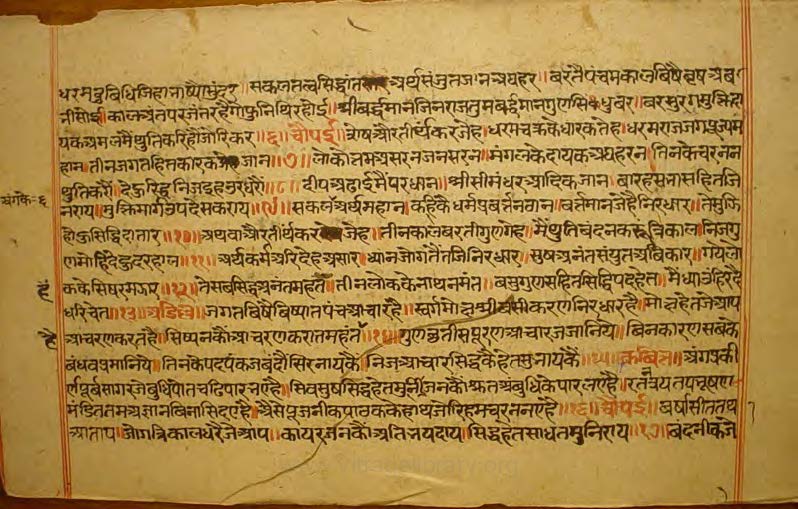 धरमबुबिधिजिहानाष्यौसुंदर॥सकलतत्वसिद्धांत अर्थसंजुतजानअघहर॥बरतैपचमकालबिषैवृषअब
नीसोई॥कालअंतपरजंतरहैगोफुनिथिरहोई॥श्रीबर्द्धमानजिनराजतुमबर्द्धमानगुणसिंधुबर॥बरसुरगमुक्तिदा
यकअमलमैंथुतिकरिहौंजोरिकर॥६॥चौपई॥शेषऔरतीर्थंकरजेह॥धरमचक्रकेधारकतेह॥धरमराजजगपूज्यम
हान॥तीनजगतहितकारक जान॥७॥लोकोत्तमअसरनजनसरन॥मंगलकेदायकअघहरन॥तिनकेचरनन
थुतिकरौं॥ ॥८॥दीपअढाईमैपरधान॥श्रीसीमंधरआदिकजान॥बारहसभासहितजि
नराय॥मुक्तिमार्गउपदेसकराय॥९॥सकलअर्थमहान॥कहिकैधर्मप्रबर्त्तनवान॥बर्त्तमानजेहैनिरधार॥तेमुझि
होऊसिद्धिदातार॥१०॥अथवाऔरतीर्थंकर जेह॥तीनकालबरतीगुणगेह॥मैंथुतिबंदनकरूत्रिकाल॥निजगु
णमोहिदेहुदरहाल॥११॥अर्थकर्मअरिदेहअसार॥ध्यानजोगतैंतजिनिरधार॥सुषअनंतसंयुतअबिकार॥गयेलो
ककेसिषरमझार॥१२॥तेसबसिद्धअनंतमहंत॥तीनलोककेनाथनमंत॥बसुगुणसहितसिद्धिपदहेत॥मैंध्याऊंहिरदै
धरिचेत॥१३॥अडिल॥जगतबिषैबिष्यातपंचआचारहै॥स्वर्गमोक्षश्रीबसीकरणनिरधारहै॥मोक्षहेतजेआप
आचरणकरतहै॥सिष्यनकौंआचरणकरातमहंत॥१४॥गुणछतीसपूरणआचारजजानिये॥बिनकारणसबके
बंधवप्रमानिये॥तिनकेपदपंकजबंदौसिरनायकै॥निजआचारसिद्धकैहेतसुनायकै॥१५॥कबित्त॥अंगप्रकी
र्णपूर्बसागरजे चढिपारनएहै॥सिवसुषसिद्धहेतमुनिजनकौंश्रुतअंबुधिकेपारलएहै॥रतंनत्रयतपभूषण
मंडिततमअज्ञानबिनासिदएहै॥ऐसेपूजनीकपाठककेहाथजोरिहमचरननएहै॥१६॥चौपई॥बर्षासीततथ
आताप॥जोगत्रिकालधरैजेआप॥कायरजनकौंअतिभयदाय॥सिद्धहेतसाधतमुनिराय॥१७॥बंदनीकजे